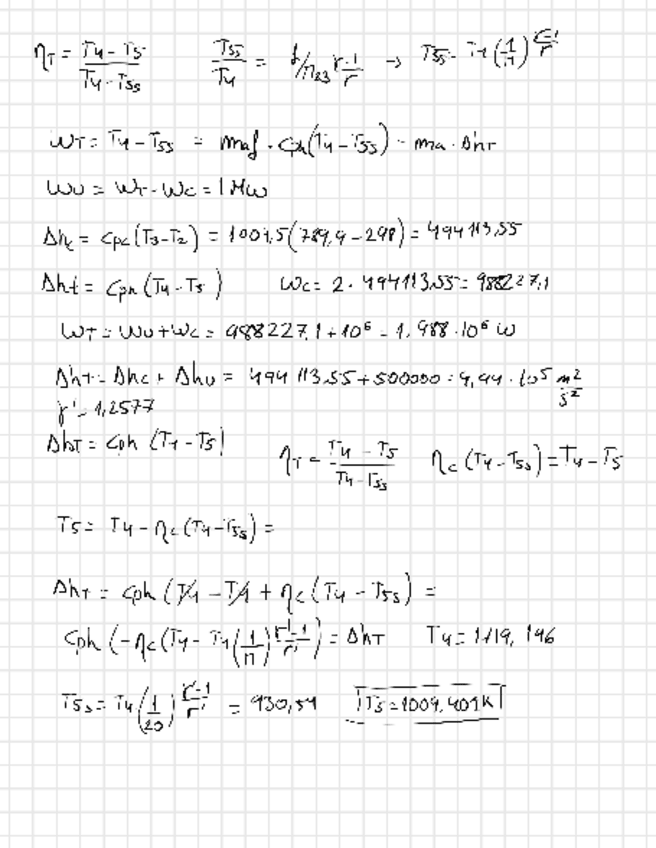 ηT = (T4 - T5)/(T4 - T5s)   T5s/T4 = 1/Π23^((r-1)/r) → T5s = T4(1/Π)^((r-1)/r)
WT = T4 - T5s = maf · cph(T4 - T5s) - ma · ΔhT
WU = WT - WC = 1 MW
Δhc = cpc(T3 - T2) = 1004,5(789,9 - 298) = 494 113,55
Δht = cph(T4 - T5)   WC = 2 · 494113,55 = 988227,1
WT = WU + WC = 988227,1 + 10^6 = 1,988 · 10^6 W
ΔhT = Δhc + Δhu = 494 113,55 + 500000 = 9,94 · 10^5 m²/s²
r' = 1,2577
ΔhT = cph (T4 - T5)   ηT = (T4 - T5)/(T4 - T5s)   ηc (T4 - T5s) = T4 - T5
T5 = T4 - ηc(T4 - T5s) =
ΔhT = cph (T4 - T4 + ηc (T4 - T5s) =
cph (-ηc (T4 - T4(1/Π)^((r'-1)/r')) = ΔhT   T4 = 1719, 146
T5s = T4 (1/20)^((r'-1)/r') = 930,54   T5 = 1009,401K